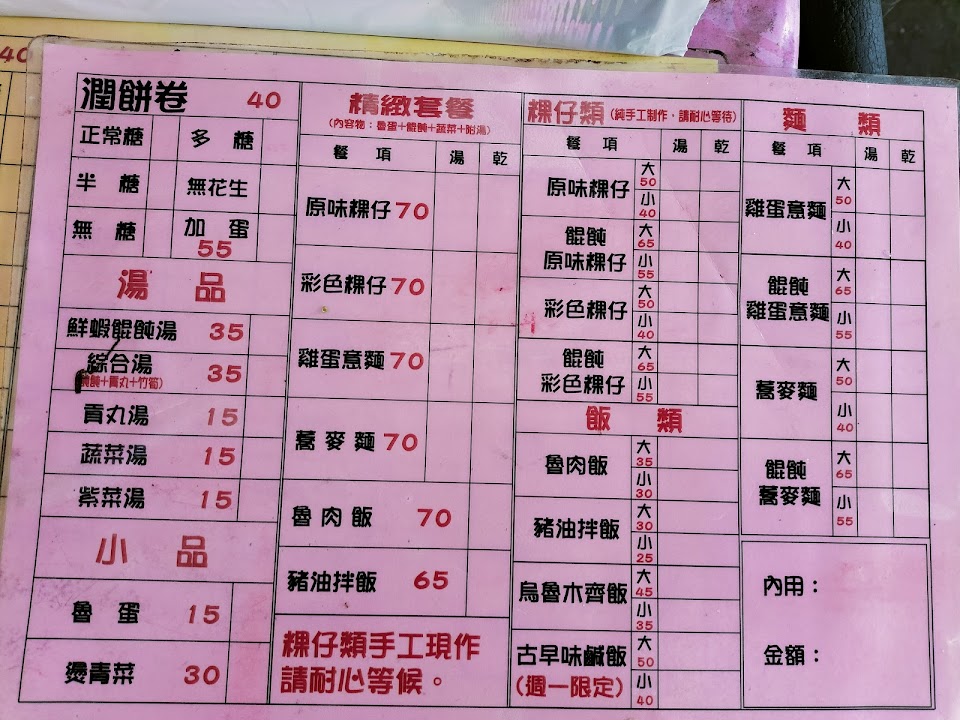 40
潤餅卷 40
正常糖 多糖
半糖 無花生
無糖 加蛋
55
湯品
鮮蝦餛飩湯 35
綜合湯 35
貢丸湯 15
蔬菜湯 15
紫菜湯 15
小品
魯蛋 15
燙青菜 30
精緻套餐
餐項 湯 乾
原味粿仔 70
彩色粿仔 70
雞蛋意麵 70
蕎麥麵 70
魯肉飯 70
豬油拌飯 65
粿仔類手工現作
請耐心等候。
粿仔類(純手工制作,請耐心等待)
餐項 湯 乾
原味粿仔 大 50
小 40
餛飩 大 65
原味粿仔 小 55
彩色粿仔 大 50
小 40
餛飩 大 65
彩色粿仔 小 55
飯類
魯肉飯 大 35
小 30
豬油拌飯 大 30
小 25
烏魯木齊飯 大 45
小 35
古早味鹹飯 大 50
(週一限定) 小 40
麵類
餐項 湯 乾
雞蛋意麵 大 50
小 40
餛飩 大 65
雞蛋意麵 小 55
蕎麥麵 大 50
小 40
餛飩 大 65
蕎麥麵 小 55
內用:
金額: